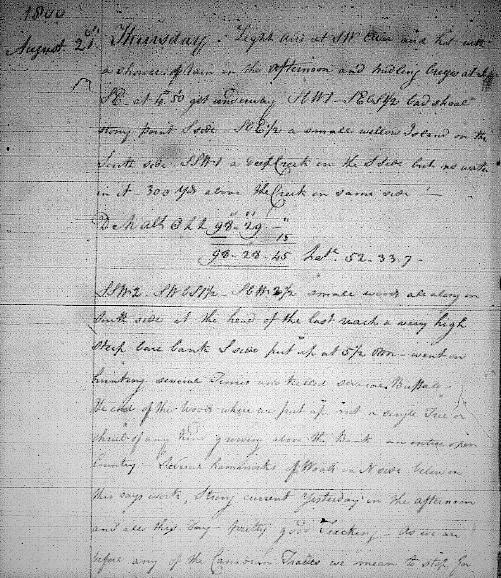 1800
August 21st Thursday. Light airs at SW Clear and hot with
a shower of rain in the afternoon and at
SE. at 4.50 got underway SbW1 - SEbS1/2 bad shoal
stony point S side. SbE1/2 a small willow Island on the
South side. SSW1 a deep Creek on the S side but no water
in it. 300 Yds above the Creek on same side
98 - 29 -
15
98 - 28 - 45 Latde. 52 - 33. 7 -
SSW2 - SWbS1/2 - SbW2 1/2 small woods all along on
South side at the head of the last reach a very high
steep bare bank S side put up at 5 1/2 PM - went on
hunting several Times and killed Buffalo
the end of the Woods where we put up not a single Tree or
Shrub of any kind growing above the Bank an entire open
Country. of Woods on N side below in
this days work, Strong current Yesterday in the afternoon
and all this day - pretty good Tracking - As we are
before any of the Canadian Traders we mean to stop for